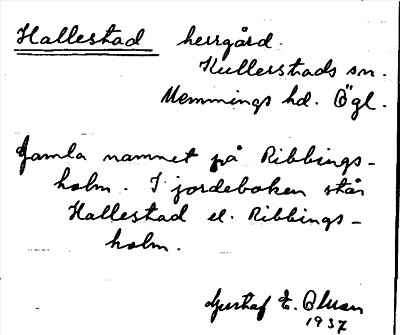 Hallestad herrgård.
Kullerstads sn.
Memmings hd. Ögl.
Gamla namnet på Ribbings-
holm. I jordeboken står
Hallestad el. Ribbings-
holm.
Gustaf E. Olsson
1937